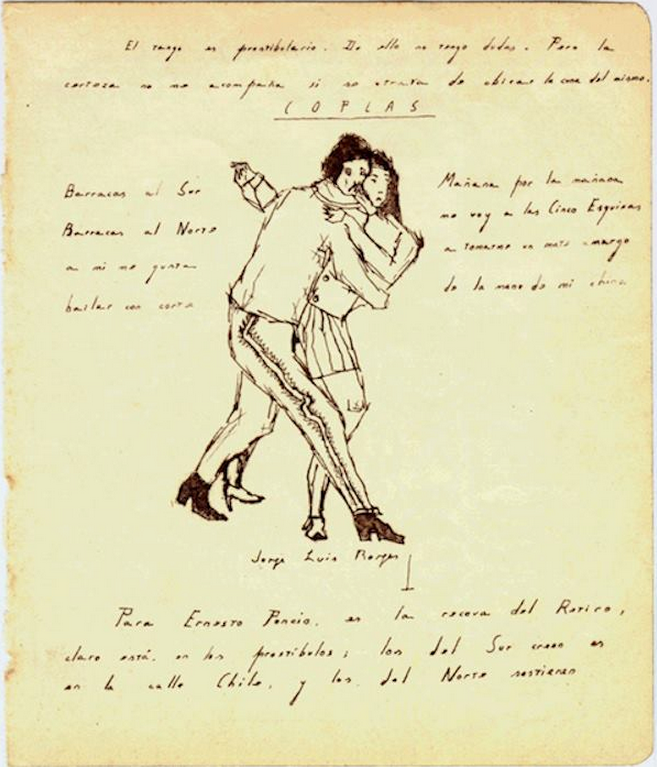 El tango es prostibulario. De ello no tengo dudas. Pero la
certeza no me acompaña si se trata de ubicar la casa del mismo.
COPLAS
Barracas al Sur
Barracas al Norte
a mi me gusta
bailar con corte
Mañana por la mañana
me voy a las Cinco Esquinas
a tomarme un mate amargo
de la mano de mi china
Jorge Luis Borges
Para Ernesto Poncio, es la recova del Retiro,
claro está, en los prostíbulos; los del Sur creen es
en la calle Chile, y los del Norte sostienen